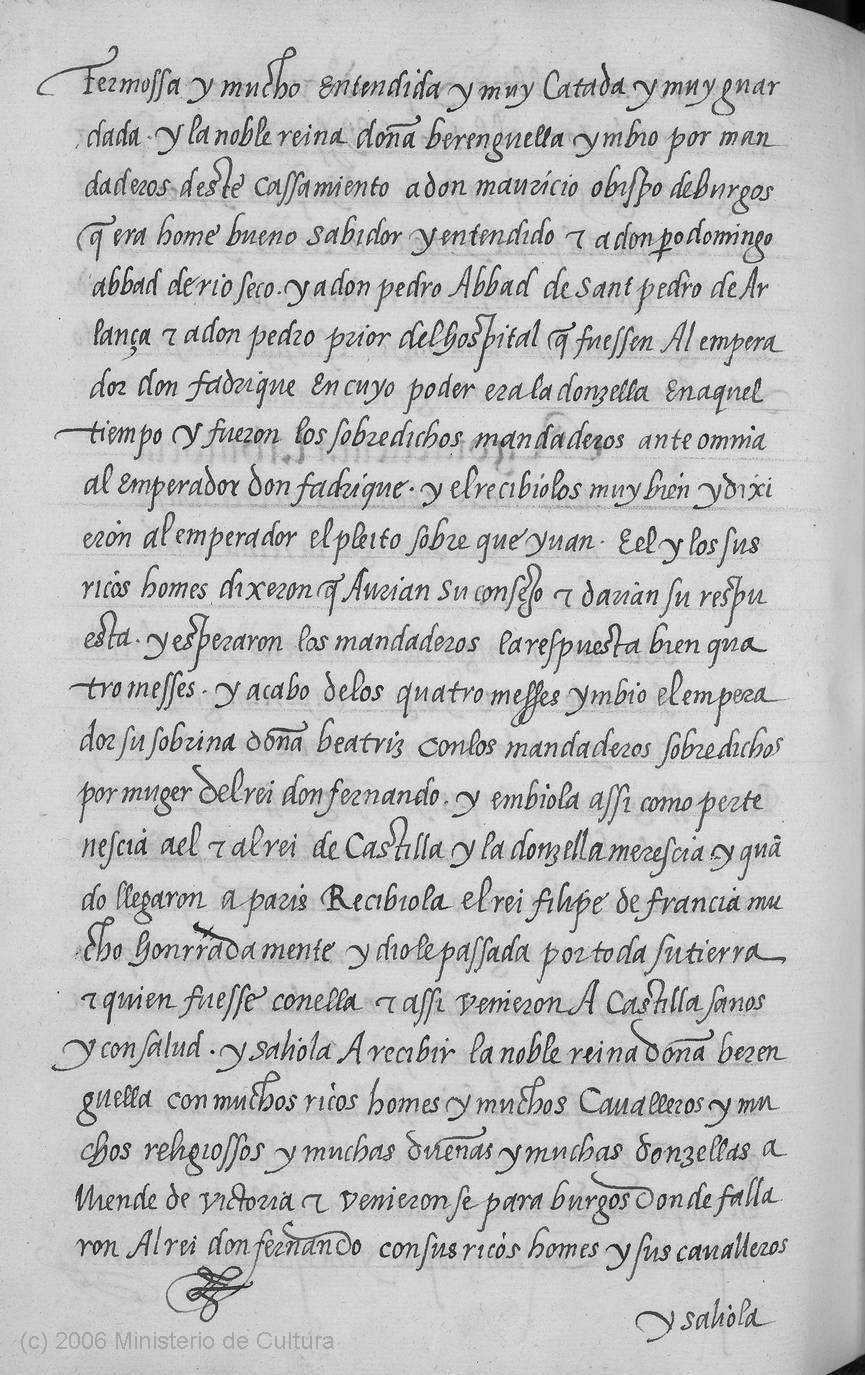 Fermossa y mucho entendida y muy Catada y muy guar
dada. y la noble reina doña berenguella ymbio por man
daderos deste cassamiento a don mauricio obispo de burgos
q̃ era home bueno sabidor y entendido τ a don pº domingo
abbad de rio seco. y a don pedro Abbad de Sant pedro de Ar
lança τ a don pedro prior del hospital q̃ fuessen Al empera
dor don fadrique En cuyo poder era la donzella En aquel
tiempo y fueron los sobredichos mandaderos ante omnia
al Emperador don fadrique. y el recibiolos muy bien y dixi
eron al emperador el pleito sobre que yuan. E el y los sus
ricos homes dixeron q̃ Aurian su consejo τ darian su respu
esta. y esperaron los mandaderos la respuesta bien qua
tro messes. y a cabo de los quatro messes ymbio el empera
dor su sobrina doña beatriz con los mandaderos sobredichos
por muger del rei don fernando. y embiola assi como perte
nescia a el τ al rei de Castilla y la donzella merescia y quã
do llegaron a paris Recibiola el rei filipe de francia mu
cho honrradamente y diole passada por toda su tierra
τ quien fuesse con ella τ assi venieron A Castilla sanos
y con salud. y saliola A recibir la noble reina doña beren
guella con muchos ricos homes y muchos Caualleros y mu
chos religiossos y muchas dueñas y muchas donzellas a
Allende de victoria τ venieron se para burgos Donde falla
ron Al rei don fernando con sus ricos homes y sus caualleros
y saliola
(c) 2006 Ministerio de Cultura